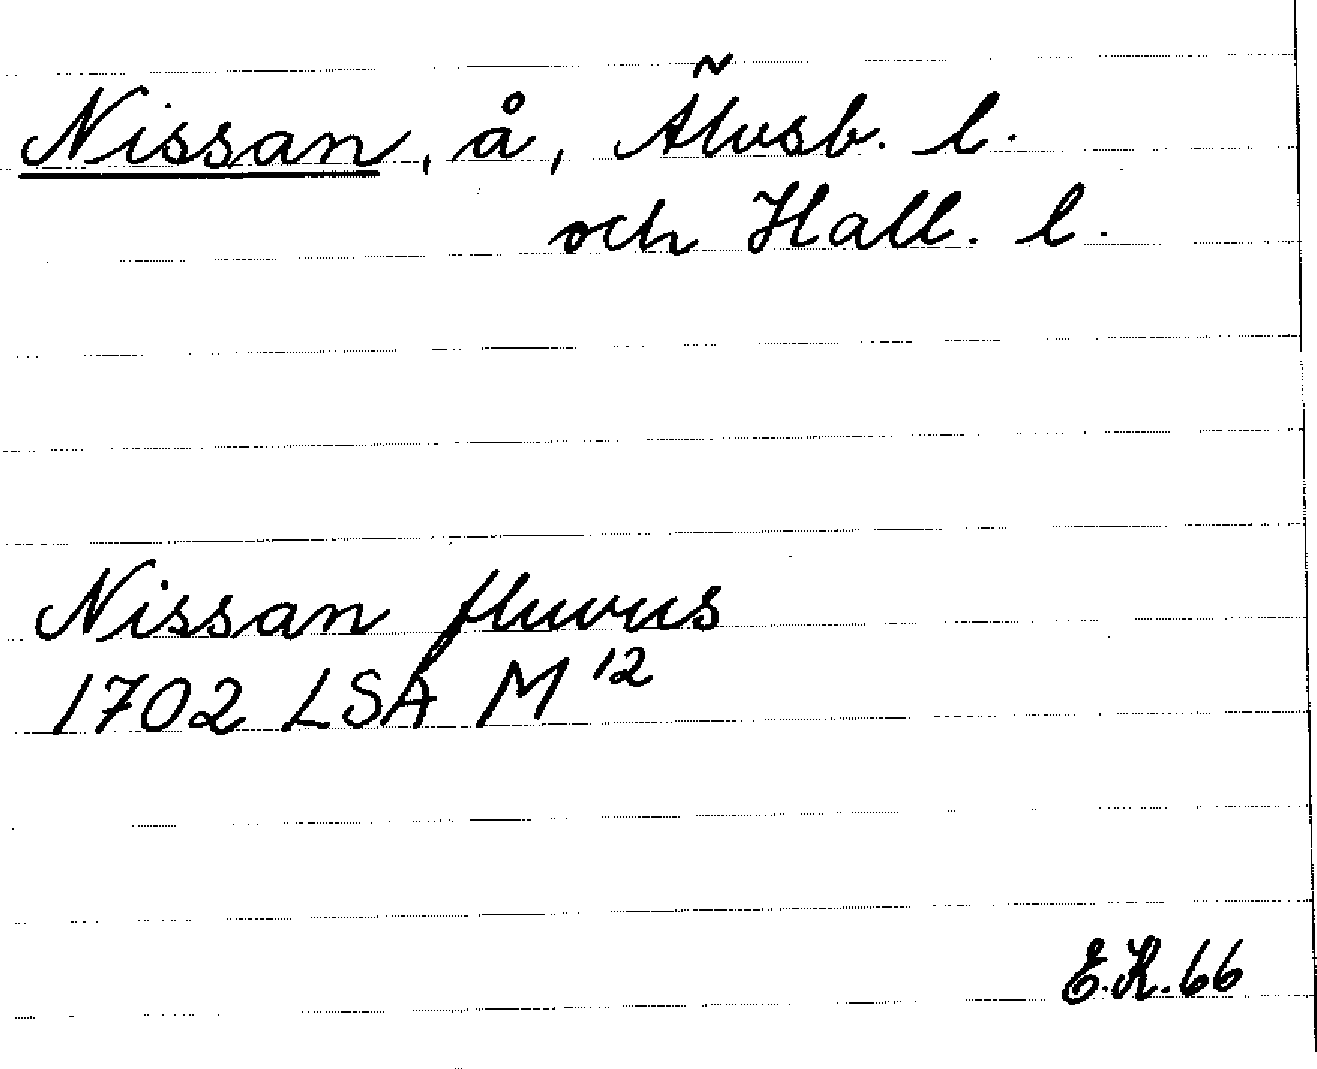 Nissan, å, Älvsb. l.
och Hall. l.
Nissan fluvius
1702 LSA M 12
E.K. 66